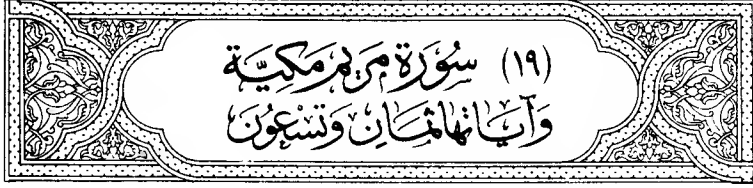 (١٩) سُوْرَة مَرْيَمَ مَكِيَّة
وَآيَاتُهَا ثَمَانٍ وَتِسْعُونَ